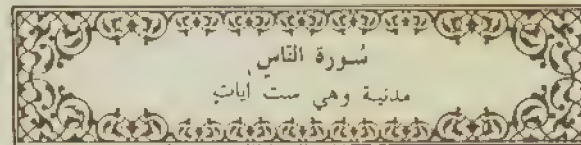 سُورة النَّاسِ
مدنية وهي ست آيات